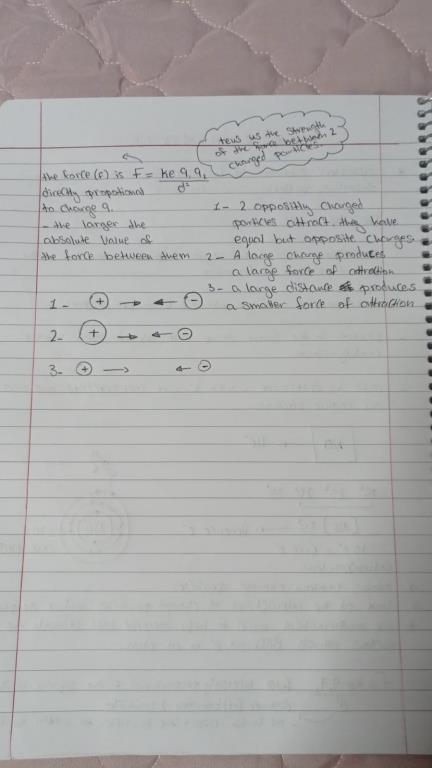 tells us the strength
of the force between 2
charged particles.
the force (F) is F = ke q, q,
d²
directly propotional
to charge q.
- the larger the
absolute value of
the force between them
1- 2 oppositly charged
particles attract. they have
equal but opposite charges.
2- A large charge produces
a large force of attraction
3- a large distance produces
a smaller force of attraction
1- + → ← -
2- + → ← -
3- + → ← -